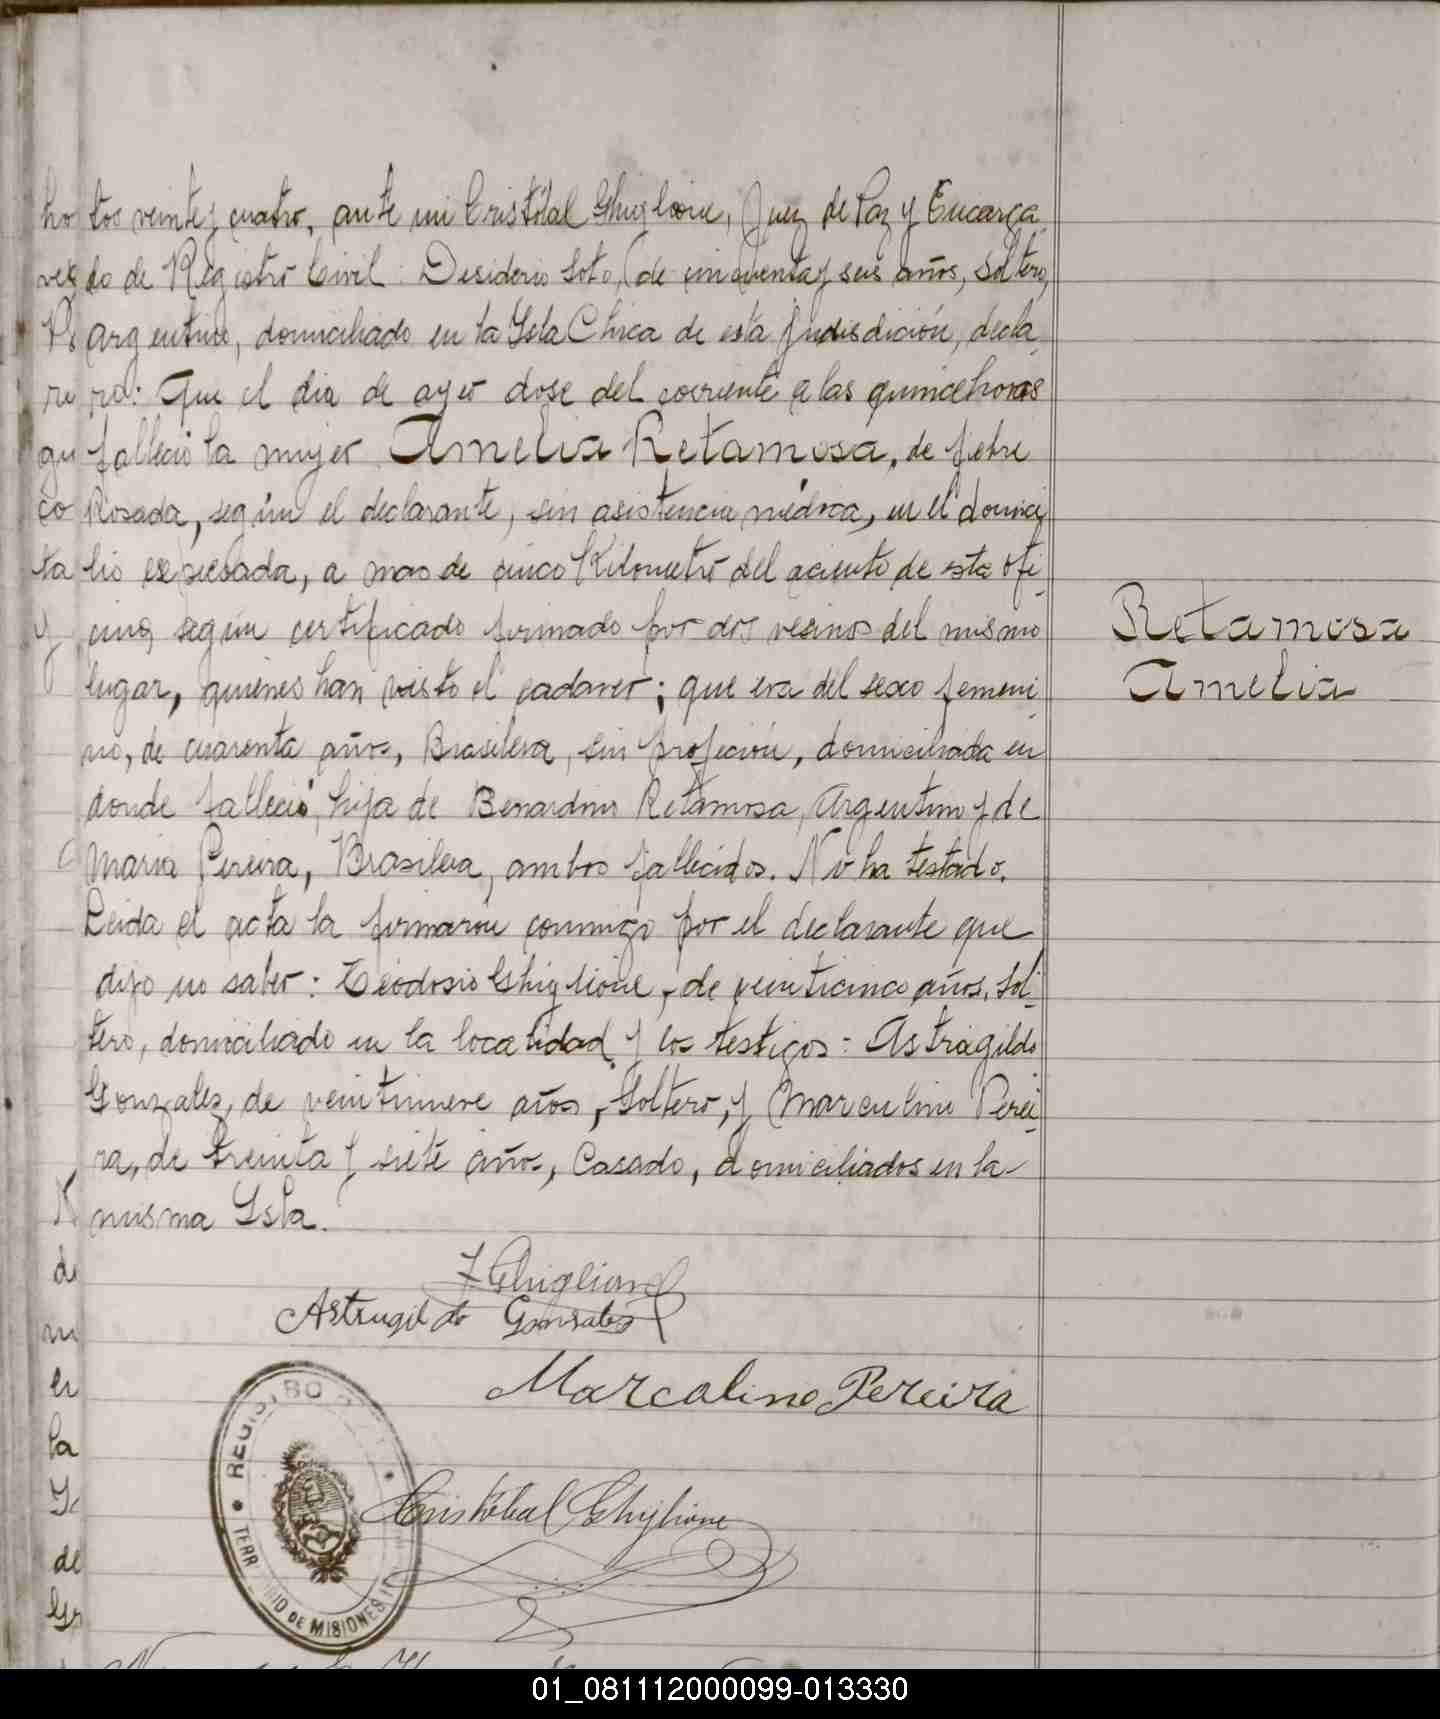 tos veinte y cuatro, ante mi Cristóbal Ghiglione, Juez de Paz y Encarga
do de Registro Civil: Desiderio Soto, de cincuenta y seis años, Soltero,
Argentino, domiciliado en la Ysla Chica de esta Jurisdición, decla
ro: Que el dia de ayer dose del corriente a las quince horas
fallecio la mujer Amelia Retamosa, de fiebre
Rosada, según el declarante, sin asistencia médica, en el domici
lio expresada, a mas de cinco Kilometro del aciento de esta ofi
cina según certificado firmado por dos vesinos del mismo
lugar, quienes han visto el cadaver; que era del sexo femeni
no, de cuarenta años, Brasilera, sin profeción, domiciliada en
donde fallecio, hija de Benardino Retamosa, Argentino y de
Maria Pereira, Brasilera, ambos fallecidos. No ha testado.
Leida el acta la firmaron conmigo por el declarante que
dijo no saber: Teodosio Ghiglione, de veinticinco años, Sol
tero, domiciliado en la localidad y los testigos: Astragildo
Gonzales, de veintinueve años, Soltero, y Marculino Perei
ra, de treinta y siete años, Casado, domiciliados en la
misma Ysla.
Retamosa
Amelia
T Ghiglione
Astrugildo Gonsales
Marcalino Pereira
Cristóbal Ghiglione
REGISTRO
TERRITORIO DE MISIONES
01_081112000099-013330